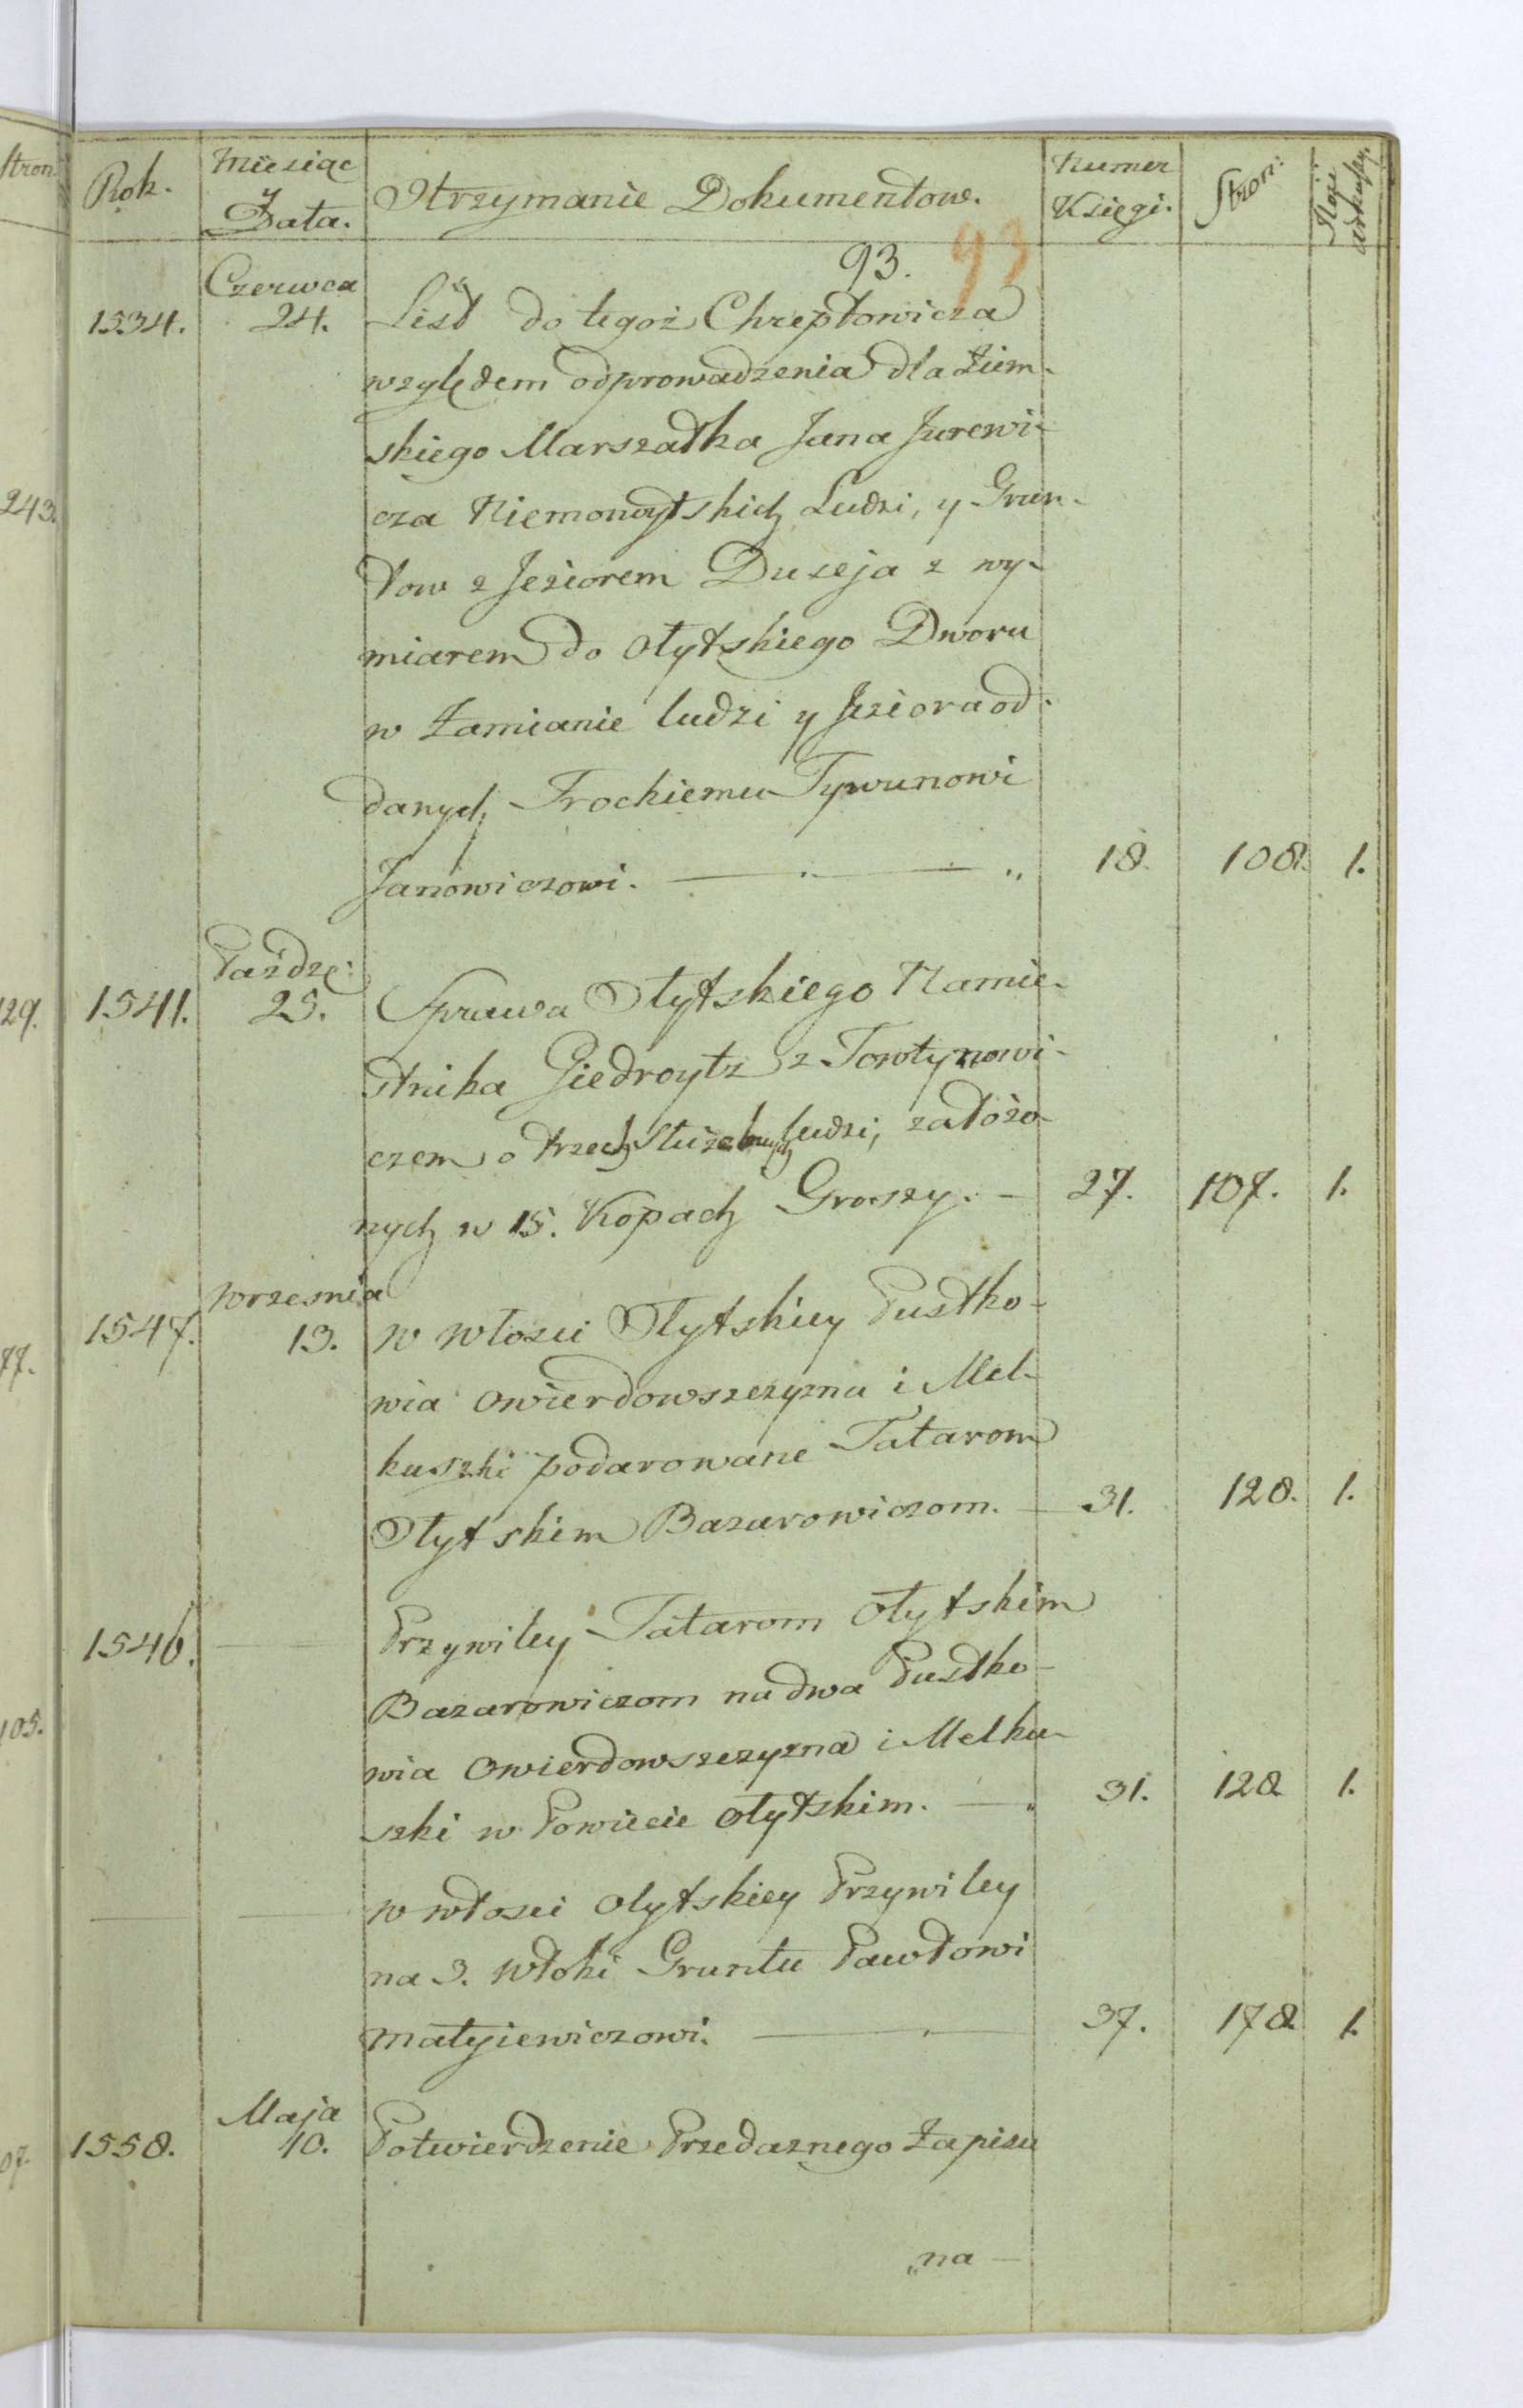 Stron
243.
129.
77.
105.
07.
Rok. Miesiąc y Data. Otrzymanie Dokumentow. Numer Księgi. Stron: Ilość arkuszy.
93. 93
Czerwca
1534. 24. List do tegoż Chreptowicza
względem odprowadzenia dla Ziem-
skiego Marszałka Jana Jurewi-
cza Niemonoytskich Ludzi, y Grun-
tow z Jeziorem Duseja z wy-
miarem do Olytskiego Dworu
w Zamianie ludzi y Jeziora od-
danych Trockiemu Tywunowi
Janowiczowi. 18. 108. 1.
Paźdze:
1541. 25. Sprawa Olytskiego Namie-
stnika Giedroytz z Towtynowi-
czem o trzech Służebnych ludzi, założo-
nych w 15. Kopach Groszy. 27. 107. 1.
Wrzesnia
1547. 13. W włosci Olytskiey Pustko-
wia Owierdowszczyzna i Mel-
kuszki podarowane Tatarom
Olytskim Bazarowiczom. 31. 128. 1.
1546. Przywiley Tatarom Olytskim
Bazarowiczom na dwa Pustko-
wia Owierdowszczyzna i Melku-
szki w Powiecie Olytskim. 31. 128. 1.
w włosci Olytskiey Przywiley
na 3. Włoki Gruntu Pawłowi
Matyjewiczowi. 37. 178. 1.
Maja
1558. 10. Potwierdzenie Przedaznego Zapisu
„na